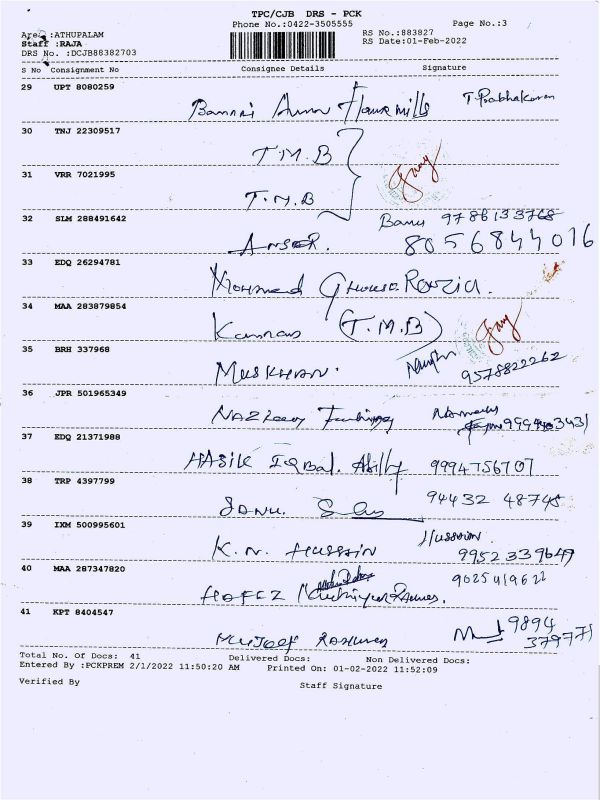 TPC/CJB DRS - PCK
Phone No.:0422-3505555 Page No.:3
Area :ATHUPALAM RS No.:883827
Staff :RAJA RS Date:01-Feb-2022
DRS No. :DCJB88382703
S No Consignment No Consignee Details Signature
29 UPT 8080259
Bannari Amm Flour mills T. Prabhakaran
30 TNJ 22309517
T.M.B
31 VRR 7021995
T.M.B
32 SLM 288491642
Banu 9786133768
ANSER. 8056844016
33 EDQ 26294781
Mohamed Ghouse Rowzia.
34 MAA 283879854
Kannan (T.M.B)
35 BRH 337968
MUSKHAN. 9578822262
36 JPR 501965349
NAZleey
37 EDQ 21371988
HASIK IQBAL. Abilly 9994756707
38 TRP 4397799
SONU. 94432 48745
39 IXM 500995601
K.N. HUSSAIN Hussain 9952339649
40 MAA 287347820
HAFEZ 9025419622
41 KPT 8404547
MUJEEF RAHMAN 9894
379771
Total No. Of Docs: 41 Delivered Docs: Non Delivered Docs:
Entered By :PCKPREM 2/1/2022 11:50:20 AM Printed On: 01-02-2022 11:52:09
Verified By Staff Signature